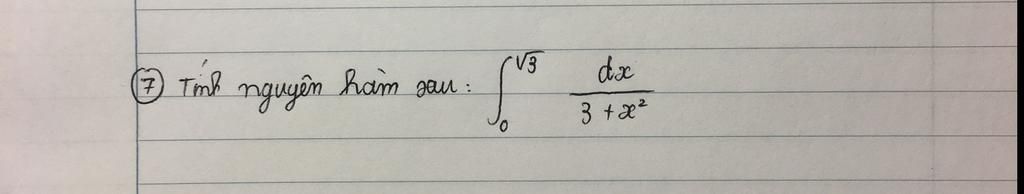 ⑦ Tính nguyên hàm sau: ∫₀^√3 dx / (3 + x²)